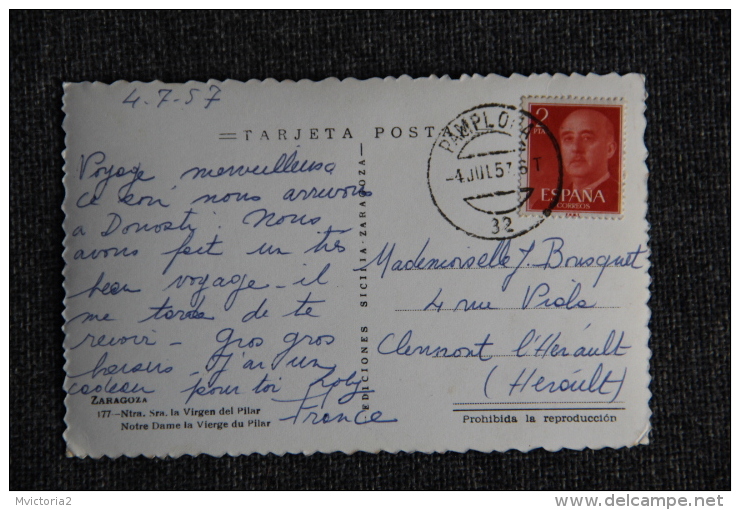 4-7-57
TARJETA POST
PAMPLONA
-4 JUL 57
32
2
PTA
ESPAÑA
CORREOS
Voyage merveilleux
ce soir nous arrivons
a Donosti. Nous
avons fait un très
beau voyage - il
me tarde de te
revoir - gros gros
baisers - j'ai un
cadeau pour toi
EDICIONES SICILIA-ZARAGOZA
Mademoiselle J. Bousquet
4 rue Viala
Clermont l'Hérault
(Hérault)
France
ZARAGOZA
177-Ntra. Sra. la Virgen del Pilar
Notre Dame la Vierge du Pilar
Prohibida la reproducción
Mvictoria2
http://www.delcampe.net